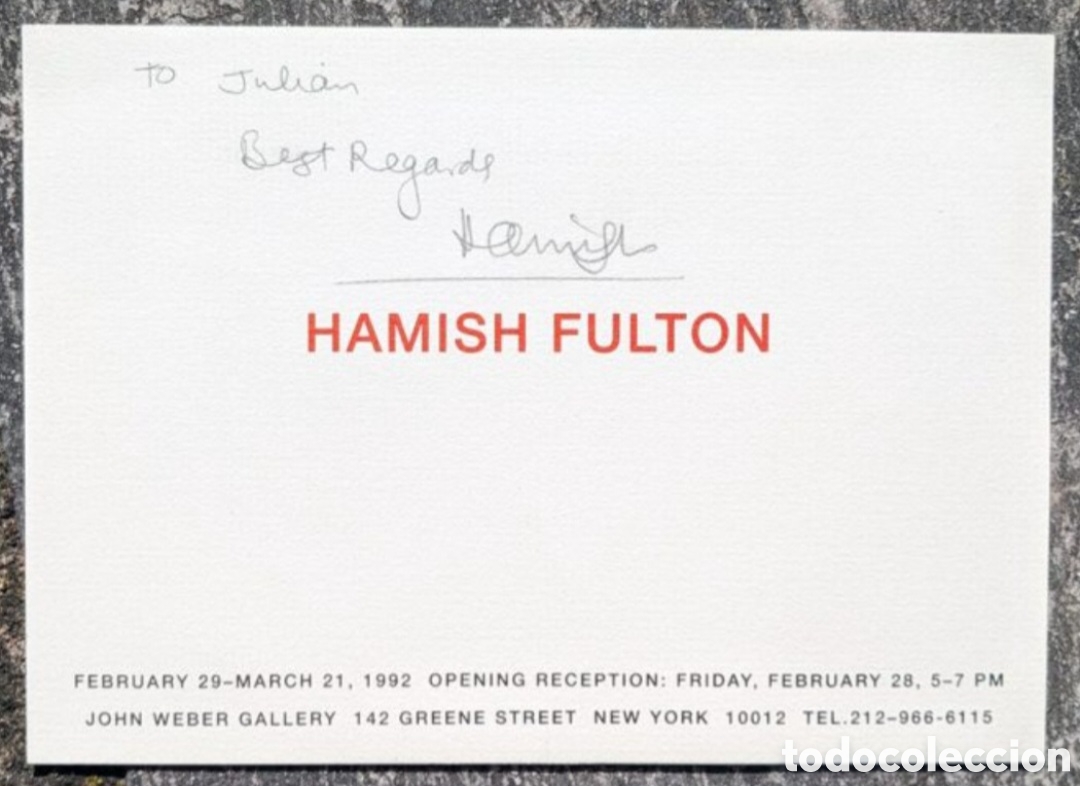 To Julian
Best Regards
Hamish
HAMISH FULTON
FEBRUARY 29–MARCH 21, 1992 OPENING RECEPTION: FRIDAY, FEBRUARY 28, 5–7 PM
JOHN WEBER GALLERY 142 GREENE STREET NEW YORK 10012 TEL.212–966-6115
todocoleccion